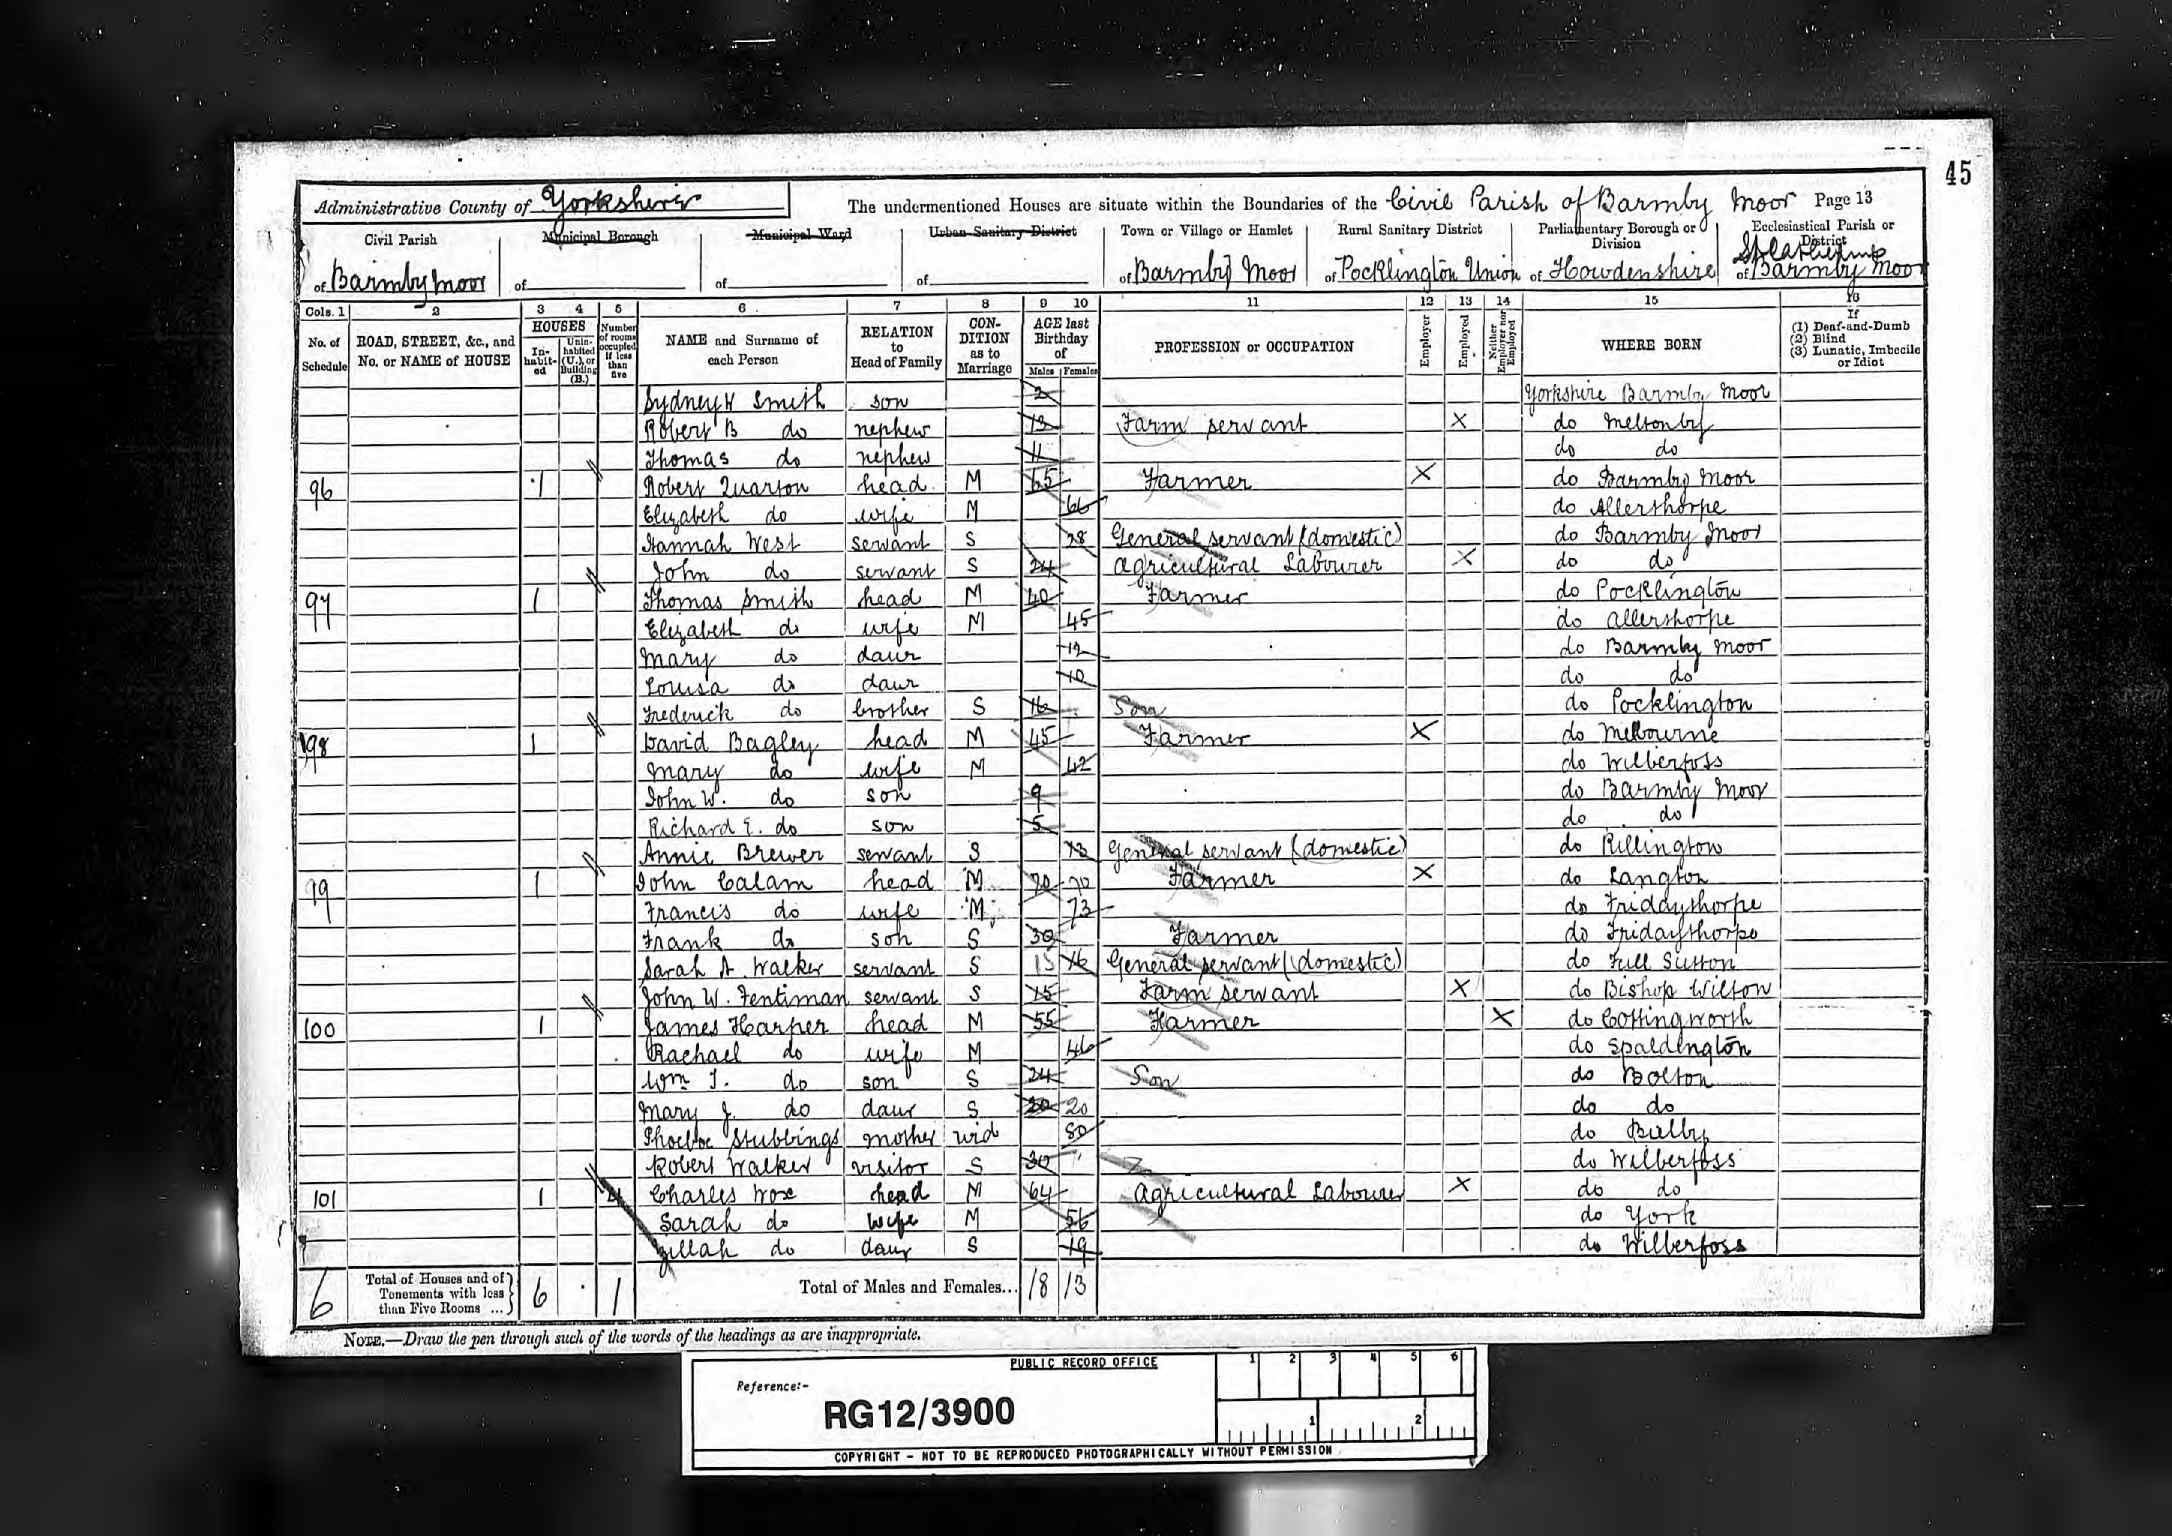 45
Administrative County of Yorkshire The undermentioned Houses are situate within the Boundaries of the Civil Parish of Barmby Moor Page 13
Civil Parish Municipal Borough Municipal Ward Urban Sanitary District Town or Village or Hamlet Rural Sanitary District Parliamentary Borough or Division Ecclesiastical Parish or District
of Barmby Moor of of of of Barmby Moor of Pocklington Union of Howdenshire of Barmby Moor
Cols. 1 2 3 4 5 6 7 8 9 10 11 12 13 14 15 16
No. of Schedule ROAD, STREET, &c., and No. or NAME of HOUSE HOUSES Inhabited Uninhabited (U.), or Building (B.) Number of rooms occupied if less than five NAME and Surname of each Person RELATION to Head of Family CONDITION as to Marriage AGE last Birthday of Males Females PROFESSION or OCCUPATION Employer Employed Neither Employer nor Employed WHERE BORN If (1) Deaf-and-Dumb (2) Blind (3) Lunatic, Imbecile or Idiot
Sydney H Smith son 2 Yorkshire Barmby Moor
Robert B do nephew 13 Farm servant X do Meltonby
Thomas do nephew 11 do do
96 1 Robert Quarton head M 65 Farmer X do Barmby Moor
Elizabeth do wife M 66 do Allersthorpe
Hannah West servant S 28 General servant (domestic) do Barmby Moor
John do servant S 24 Agricultural Labourer X do do
97 1 Thomas Smith head M 40 Farmer do Pocklington
Elizabeth do wife M 45 do Allersthorpe
Mary do daur 12 do Barmby Moor
Louisa do daur 10 do do
Frederick do brother S 16 Son do Pocklington
98 1 David Bagley head M 45 Farmer X do Melbourne
Mary do wife M 42 do Wilberfoss
John W. do son 9 do Barmby Moor
Richard E. do son 5 do do
Annie Brewer servant S 13 General servant (domestic) do Rillington
99 1 John Calam head M 70 70 Farmer X do Langton
Francis do wife M 73 do Fridaythorpe
Frank do son S 30 Farmer do Fridaythorpe
Sarah A Walker servant S 15 16 General servant (domestic) do Full Sutton
John W. Fentiman servant S 15 Farm servant X do Bishop Wilton
100 1 James Harper head M 55 Farmer X do Cottingworth
Rachael do wife M 46 do Spaldington
Wm T. do son S 24 Son do Bolton
Mary J. do daur S 20 20 do do
Phoebe Stubbings mother wid 80 do Bielby
Robert Walker visitor S 30 do Wilberfoss
101 1 4 Charles Wose head M 64 Agricultural Labourer X do do
Sarah do wife M 56 do York
Zillah do daur S 19 do Wilberfoss
6 Total of Houses and of Tenements with less than Five Rooms ... 6 1 Total of Males and Females... 18 13
NOTE.—Draw the pen through such of the words of the headings as are inappropriate.
PUBLIC RECORD OFFICE 1 2 3 4 5 6
Reference:-
RG12/3900 1 2
COPYRIGHT - NOT TO BE REPRODUCED PHOTOGRAPHICALLY WITHOUT PERMISSION